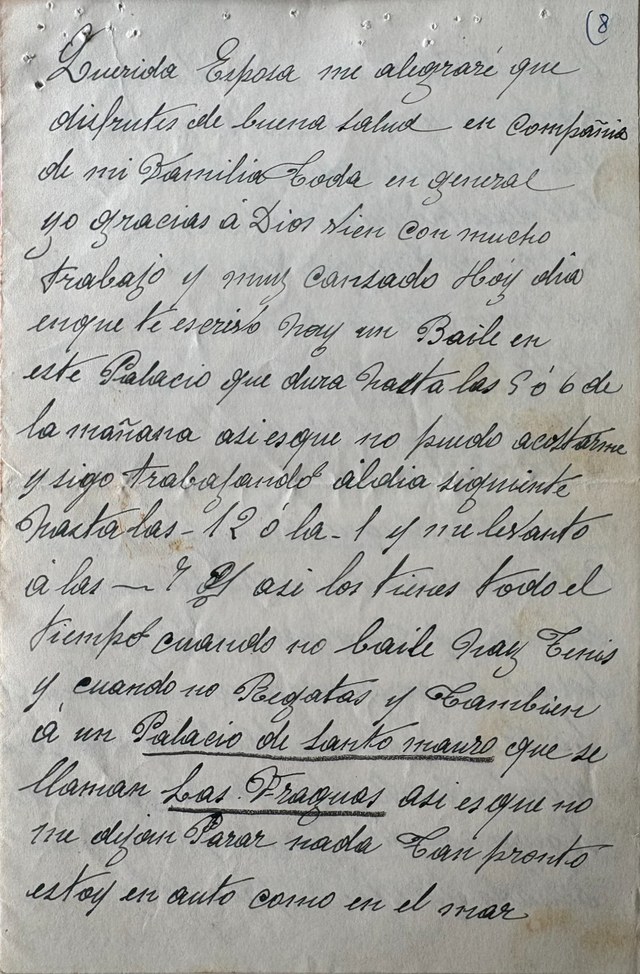 (8
Querida Esposa me alegraré que
disfrutes de buena salud en compañia
de mi Familia Toda en general
yo gracias á Dios vien con mucho
trabajo y muy cansado Hoy dia
enque te escrivo hay un Baile en
este Palacio que dura hasta las 5 ó 6 de
la mañana asi esque no puedo acostarme
y sigo trabajando al dia siguiente
hasta las - 12 ó la - 1 y me levanto
á las — 7 y asi los tienes todo el
tiempo cuando no baile hay Tenis
y cuando no Regatas y Tambien
á un Palacio de Santo mauro que se
llaman Las Fraguas asi es que no
me dejan Parar nada Tan pronto
estoy en auto como en el mar